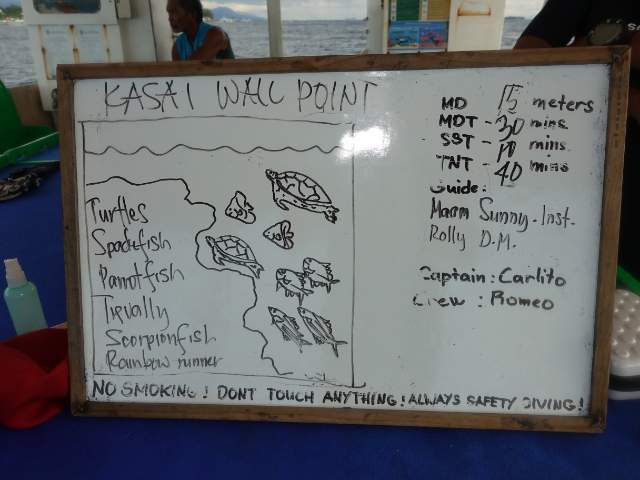 KASAI WALL POINT
Turtles
Spadefish
Parrotfish
Trevally
Scorpionfish
Rainbow runner
MD 15 meters
MDT - 30 mins
SST - 10 mins.
TNT - 40 mins
Guide:
Maam Sunny - Inst.
Rolly D.M.
Captain: Carlito
Crew : Romeo
NO SMOKING! DONT TOUCH ANYTHING! ALWAYS SAFETY DIVING!